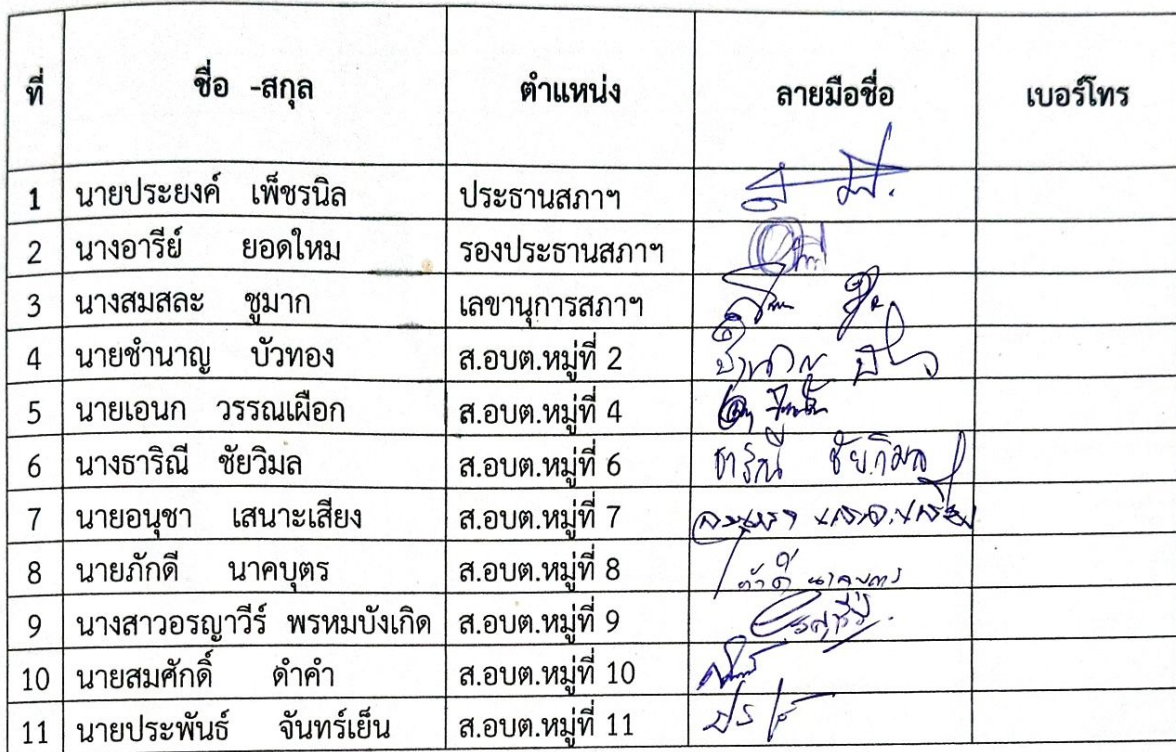 ที่ ชื่อ -สกุล ตำแหน่ง ลายมือชื่อ เบอร์โทร
1 นายประยงค์ เพ็ชรนิล ประธานสภาฯ
2 นางอารีย์ ยอดใหม รองประธานสภาฯ
3 นางสมสละ ชูมาก เลขานุการสภาฯ
4 นายชำนาญ บัวทอง ส.อบต.หมู่ที่ 2
5 นายเอนก วรรณเผือก ส.อบต.หมู่ที่ 4
6 นางธาริณี ชัยวิมล ส.อบต.หมู่ที่ 6 ธาริณี ชัยวิมล
7 นายอนุชา เสนาะเสียง ส.อบต.หมู่ที่ 7
8 นายภักดี นาคบุตร ส.อบต.หมู่ที่ 8 ภักดี นาคบุตร
9 นางสาวอรญาวีร์ พรหมบังเกิด ส.อบต.หมู่ที่ 9
10 นายสมศักดิ์ ดำคำ ส.อบต.หมู่ที่ 10
11 นายประพันธ์ จันทร์เย็น ส.อบต.หมู่ที่ 11